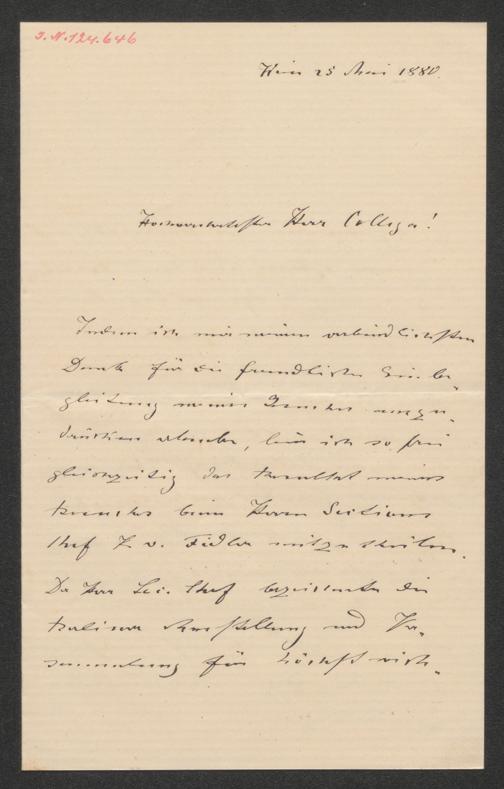 J.N. 124.646
Wien 25 Mai 1880.
Hochverehrtester Herr Collega!
Indem ich mir meinen verbindlichsten
Dank für die freundliche Einbe-
gleitung meines auszu-
drücken erlaube, bin ich so frei
gleichzeitig das Resultat meines
Besuches beim Herrn Sections
Chef v. Fidler mitzutheilen.
Der Herr Sec. Chef bezeichnete die
Berliner Ausstellung und Ver-
sammlung für höchst wich-